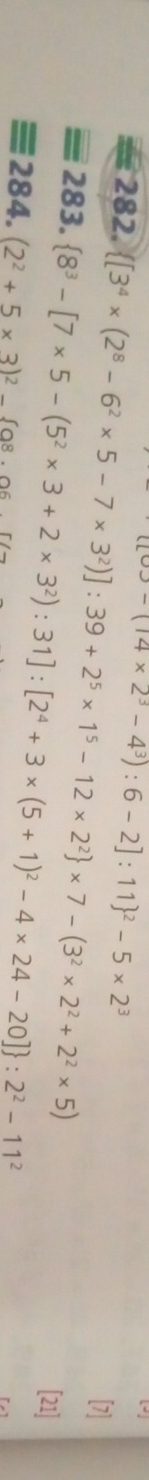 – (14 × 2³ – 4³) : 6 – 2] : 11}² – 5 × 2³ [7]
282. {[3⁴ × (2⁸ – 6² × 5 – 7 × 3²)] : 39 + 2⁵ × 1⁵ – 12 × 2²} × 7 – (3² × 2² + 2² × 5) [21]
283. {8³ – [7 × 5 – (5² × 3 + 2 × 3²) : 31] : [2⁴ + 3 × (5 + 1)² – 4 × 24 – 20]} : 2² – 11²
284. (2² + 5 × 3)² – {9⁸ : 9⁶